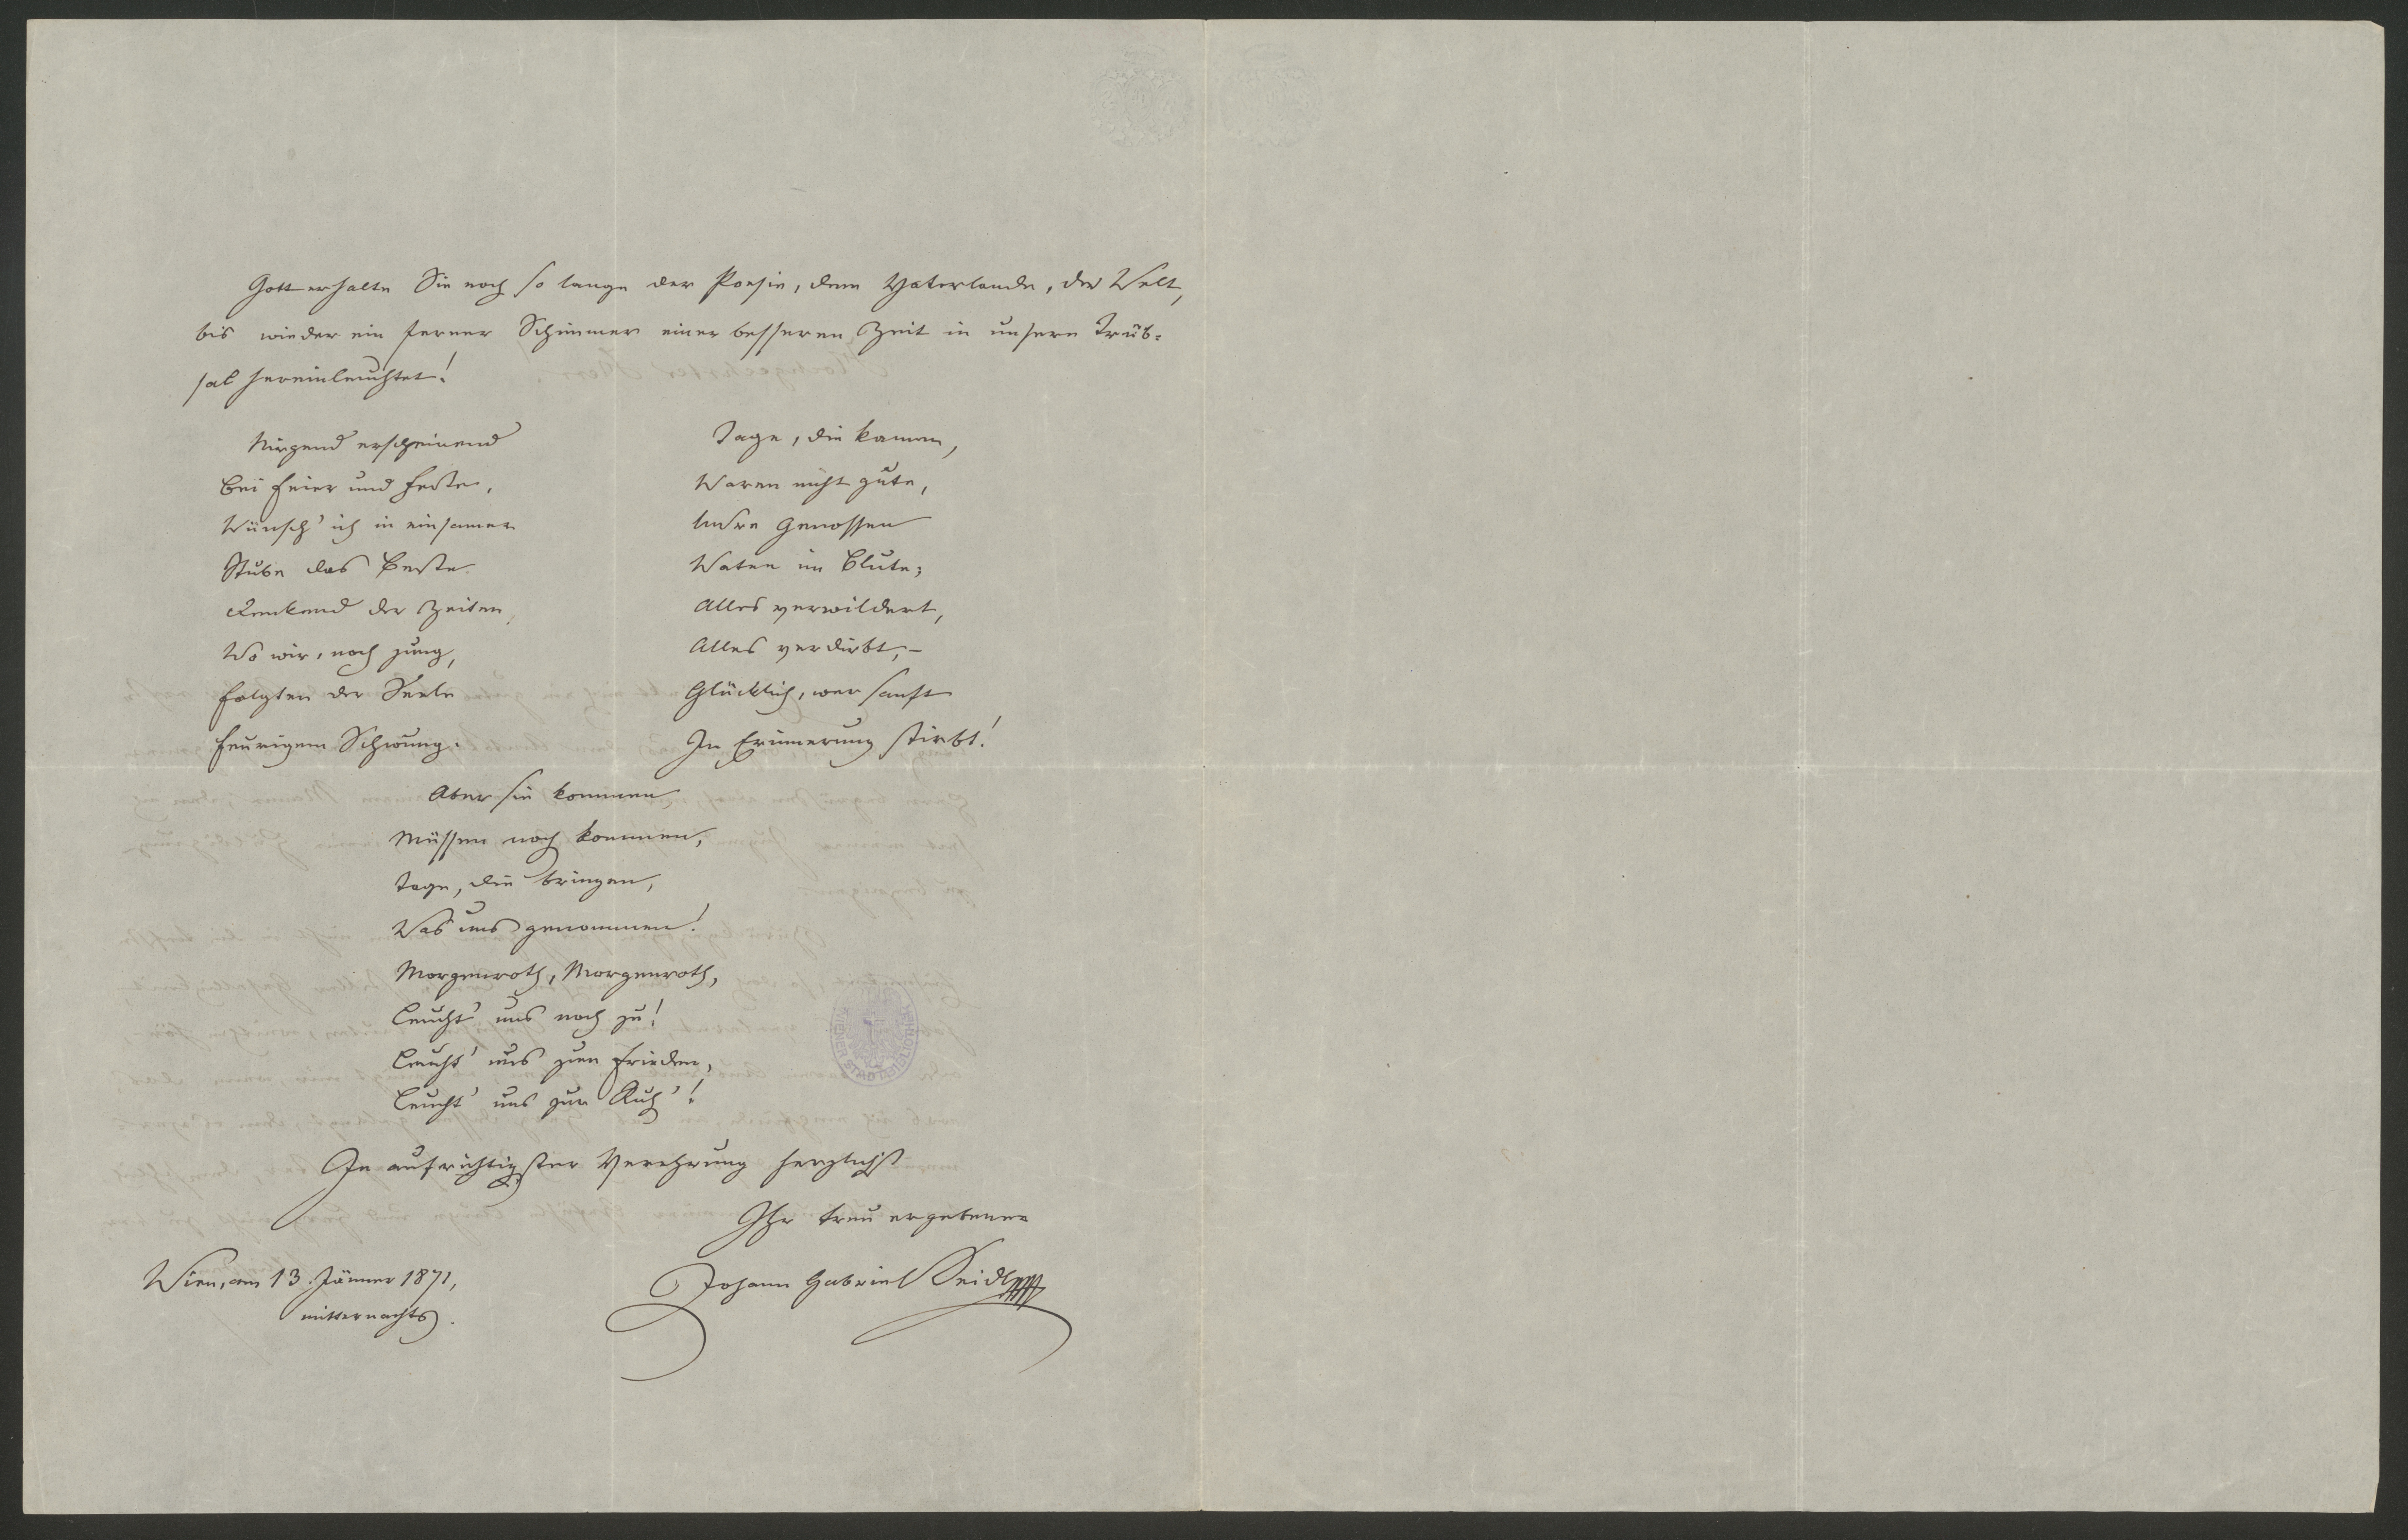 Gott erhalte Sie noch so lange der Poesie, dem Vaterlande, der Welt,
bis wieder ein ferner Schimmer einer besseren Zeit in unsere Trüb-
sal hereinleuchtet!
Nirgend erscheinend
Bei Feier und Feste,
Wünsch' ich in einsamer
Stube das Beste.
Denkend der Zeiten,
Wo wir, noch jung,
Folgten der Seele
Feurigem Schwung.
Tage, die kamen,
Waren nicht gute,
Unsre Genossen
Waten im Blute;
Alles verwildert,
Alles verdirbt, –
Glücklich, wer sanft
In Erinnerung stirbt!
Aber sie kommen,
Müssen noch kommen,
Tage, die bringen,
Was uns genommen!
Morgenroth, Morgenroth,
Leucht' uns noch zu!
Leucht' uns zum Frieden,
Leucht' uns zur Ruh'!
In aufrichtigster Verehrung herzlichst
Ihr treu ergebener
Johann Gabriel Seidl
Wien, am 13. Jänner 1871,
mitternachts.